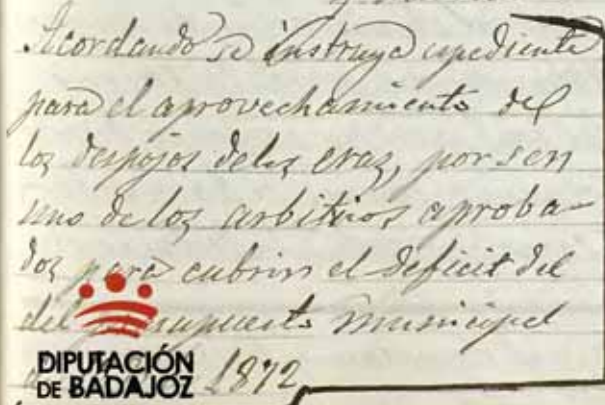 Acordando se instruya espediente
para el aprovechamiento del
los despojos delas eras, por ser
uno de los arbitrios aproba-
dos para cubrir el deficit del
del municipal
1872
DIPUTACIÓN
DE BADAJOZ